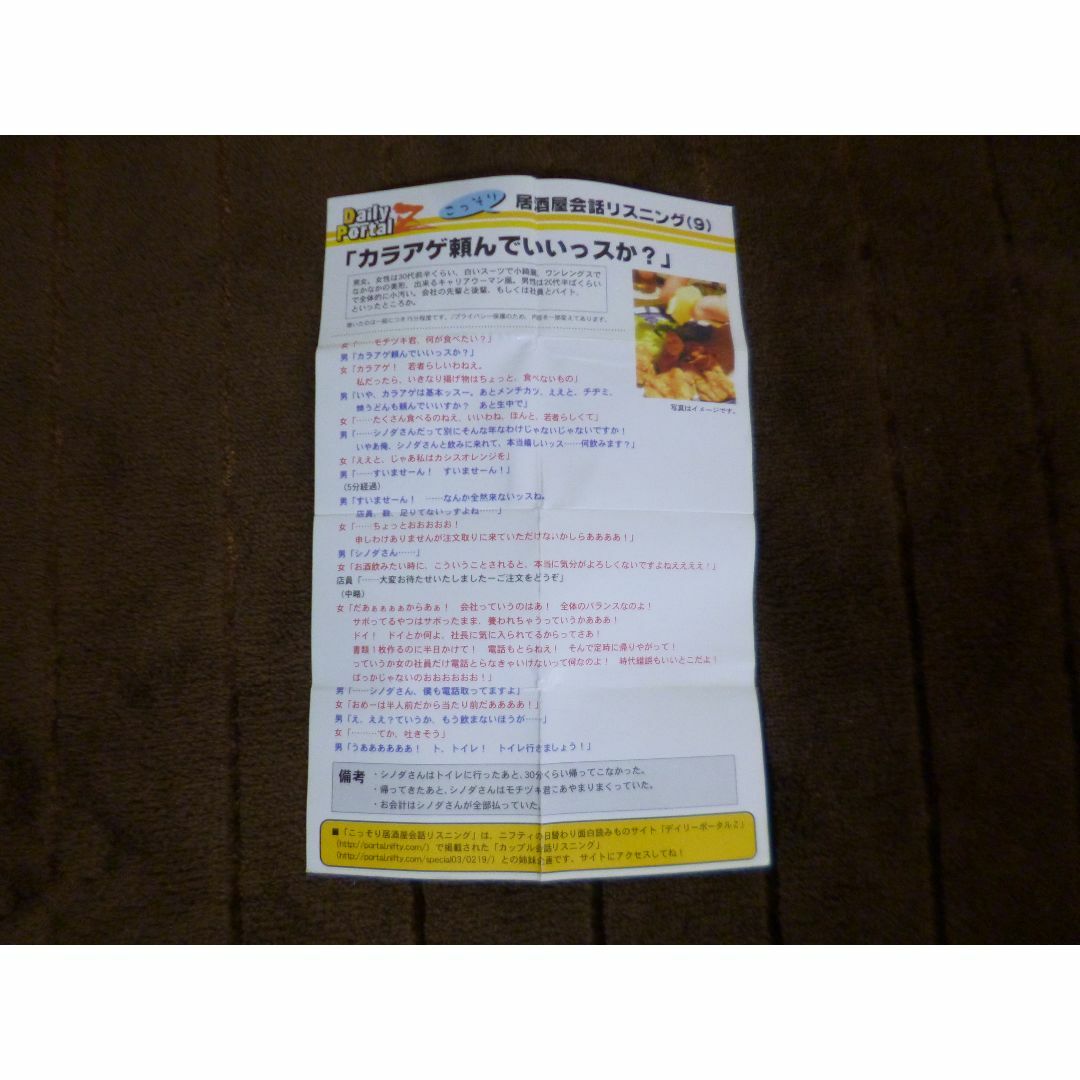 Daily Portal Z
こっそり 居酒屋会話リスニング(9)
「カラアゲ頼んでいいっスか？」
男女、女性は30代前半くらい、白いスーツで小綺麗、ワンレングスで
なかなかの美形、出来るキャリアウーマン風。男性は20代半ばくらい
で全体的に小汚い。会社の先輩と後輩、もしくは社員とバイト、
といったところか。
聞いたのは一組につき15分程度です。/プライバシー保護のため、内容を一部変えてあります。
写真はイメージです。
女「……モチヅキ君、何が食べたい？」
男「カラアゲ頼んでいいっスか？」
女「カラアゲ！　若者らしいわねえ。
私だったら、いきなり揚げ物はちょっと、食べないもの」
男「いや、カラアゲは基本ッスー。あとメンチカツ、ええと、チヂミ、
焼うどんも頼んでいいすか？　あと生中で」
女「……たくさん食べるのねえ、いいわね、ほんと、若者らしくて」
男「……シノダさんだって別にそんな年なわけじゃないじゃないですか！
いやあ俺、シノダさんと飲みに来れて、本当嬉しいッス……何飲みます？」
女「ええと、じゃあ私はカシスオレンジを」
男「……すいませーん！　すいませーん！」
（5分経過）
男「すいませーん！　……なんか全然来ないッスね。
店員、数、足りてないっすよね……」
女「……ちょっとおおおおお！
申しわけありませんが注文取りに来ていただけないかしらああああ！」
男「シノダさん……」
女「お酒飲みたい時に、こういうことされると、本当に気分がよろしくないですよねええええ！」
店員「……大変お待たせいたしましたーご注文をどうぞ」
（中略）
女「だあぁぁぁぁからあぁ！　会社っていうのはあ！　全体のバランスなのよ！
サボってるやつはサボったまま、養われちゃうっていうかあああ！
ドイ！　ドイとか何よ、社長に気に入られてるからってさあ！
書類1枚作るのに半日かけて！　電話もとらねえ！　そんで定時に帰りやがって！
っていうか女の社員だけ電話とらなきゃいけないって何なのよ！　時代錯誤もいいとこだよ！
ばっかじゃないのおおおおおお！」
男「……シノダさん、僕も電話取ってますよ」
女「おめーは半人前だから当たり前だああああ！」
男「え、ええ？ていうか、もう飲まないほうが……」
女「………てか、吐きそう」
男「うああああああ！　ト、トイレ！　トイレ行きましょう！」
備考
・シノダさんはトイレに行ったあと、30分くらい帰ってこなかった。
・帰ってきたあと、シノダさんはモチヅキ君にあやまりまくっていた。
・お会計はシノダさんが全部払っていた。
■「こっそり居酒屋会話リスニング」は、ニフティの日替わり面白読みものサイト「デイリーポータルZ」
（http://portal.nifty.com/）で掲載された「カップル会話リスニング」
（http://portal.nifty.com/special03/0219/）との姉妹企画です。サイトにアクセスしてね！